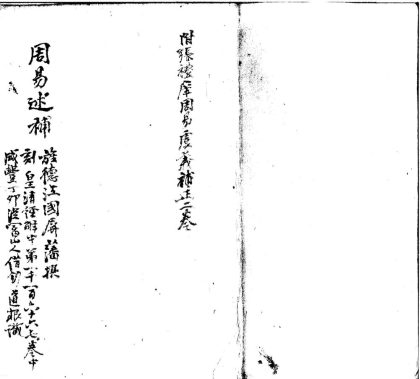 附張周易虞義補正二卷
周易述補
旌德江國屏藩撰
刻皇清經解中第一千一百六十六七卷中
咸豐丁山人借鈔道根識